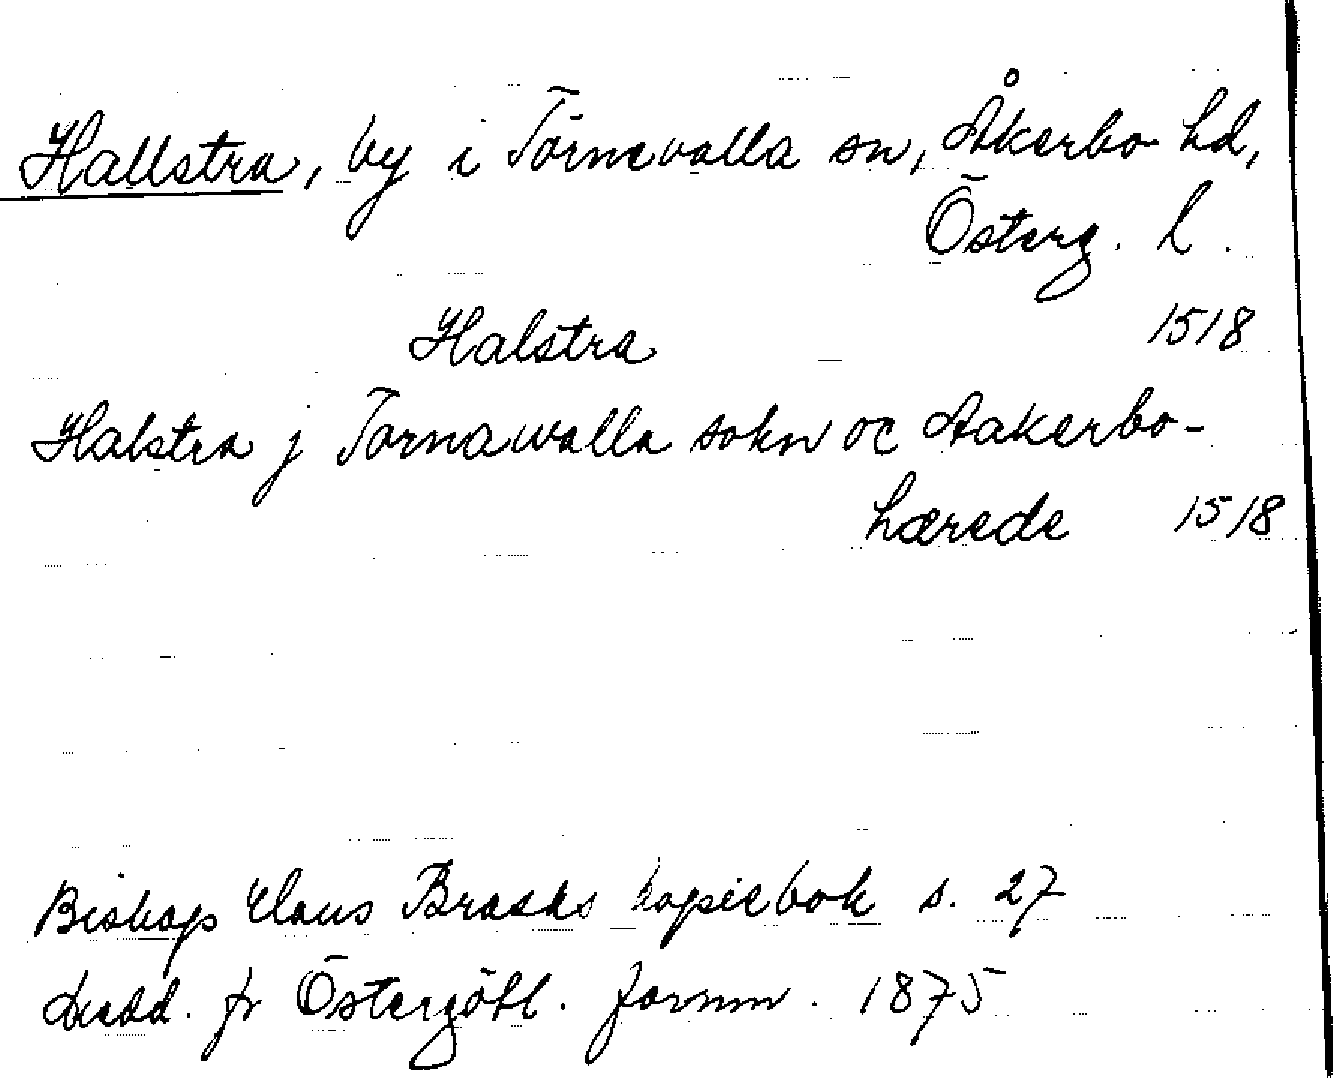 Hallstra, by i Törnevalla sn, Åkerbo hd,
Österg. l.
Halstra 1518
Halstra j Tornawalla sokn oc Aakerbo-
hærede 1518
Biskop Claus Brasks kopiebok s. 27
Medd. fr Östergötl. fornm. 1875